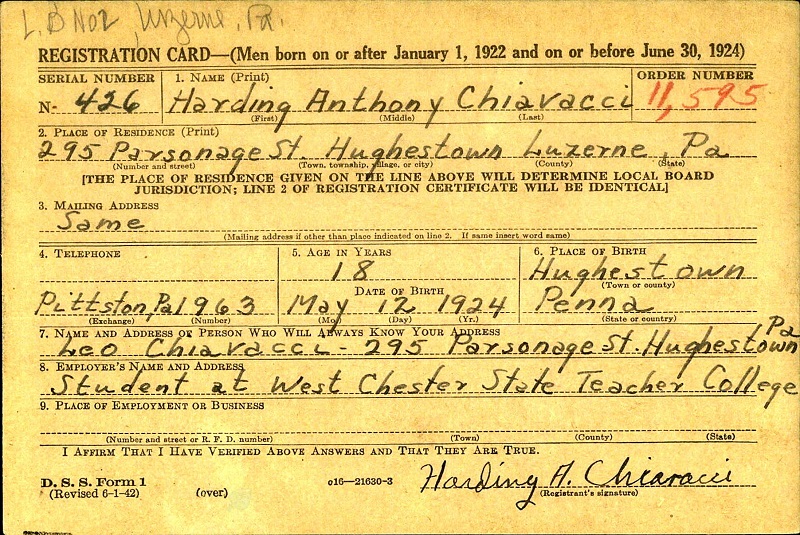 L.B No2 Luzerne, Pa.
REGISTRATION CARD—(Men born on or after January 1, 1922 and on or before June 30, 1924)
SERIAL NUMBER 1. NAME (Print) ORDER NUMBER
N- 426 Harding Anthony Chiavacci 11,595
(First) (Middle) (Last)
2. PLACE OF RESIDENCE (Print)
295 Parsonage St. Hughestown Luzerne, Pa
(Number and street) (Town, township, village, or city) (County) (State)
[THE PLACE OF RESIDENCE GIVEN ON THE LINE ABOVE WILL DETERMINE LOCAL BOARD
JURISDICTION; LINE 2 OF REGISTRATION CERTIFICATE WILL BE IDENTICAL]
3. MAILING ADDRESS
Same
(Mailing address if other than place indicated on line 2. If same insert word same)
4. TELEPHONE 5. AGE IN YEARS 6. PLACE OF BIRTH
18 Hughestown
(Town or county)
DATE OF BIRTH
Pittston, Pa 1963 May 12 1924 Penna
(Exchange) (Number) (Mo.) (Day) (Yr.) (State or country)
7. NAME AND ADDRESS OF PERSON WHO WILL ALWAYS KNOW YOUR ADDRESS
Leo Chiavacci - 295 Parsonage St. Hughestown Pa
8. EMPLOYER'S NAME AND ADDRESS
Student at West Chester State Teacher College
9. PLACE OF EMPLOYMENT OR BUSINESS
(Number and street or R. F. D. number) (Town) (County) (State)
I AFFIRM THAT I HAVE VERIFIED ABOVE ANSWERS AND THAT THEY ARE TRUE.
D. S. S. Form 1
(Revised 6-1-42) (over) c16—21630-3 Harding A. Chiavacci
(Registrant's signature)